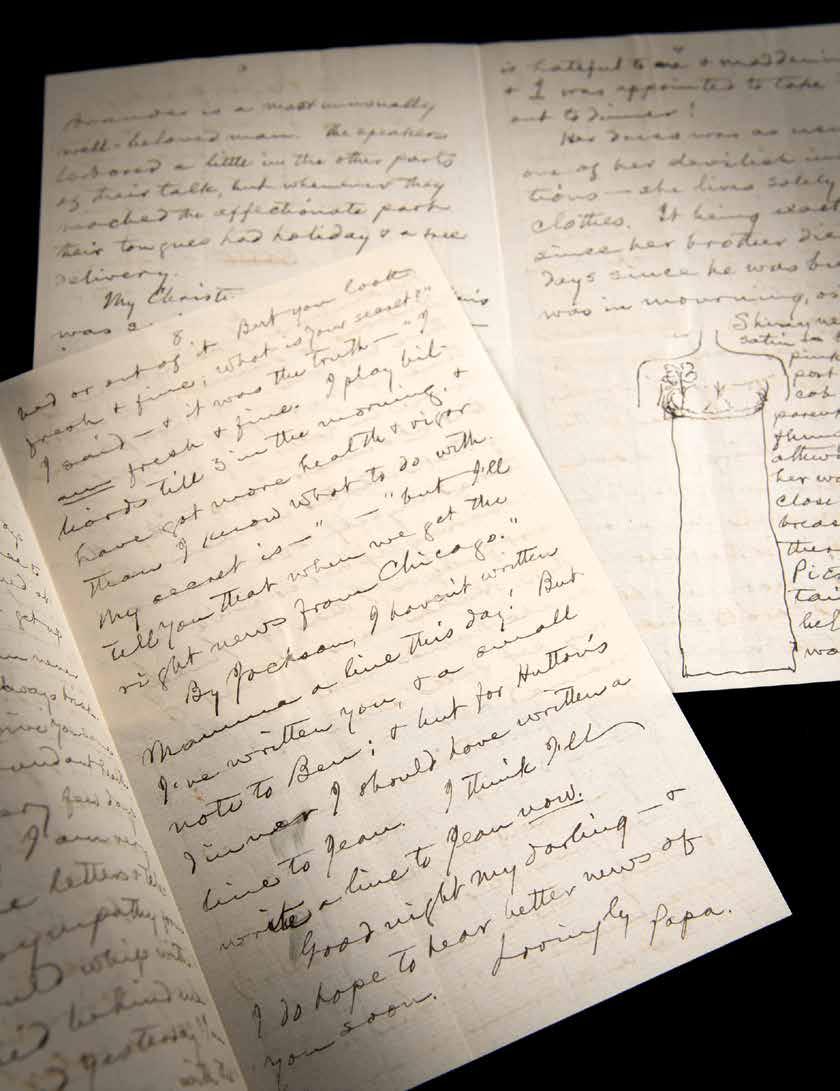 Brander is a most unusually
well-beloved man. The speakers
labored a little in the other parts
of their talk, but whenever they
reached the affectionate part
their tongues had holiday & a free
delivery.
My Christ
was a
is hateful to me & maddenin
& I was appointed to take
out to dinner!
Her dress was as us
one of her devilish in
tions — she lives solely
clothes. It being exact
since her brother die
days since he was bu
was in mourning, as
Shiny ne
satin
pink
port
par
her wa
close
breas
ther
Pic
tai
hel
wa
8
ned or out of it. But you look
fresh & fine; what is your secret?"
I said — & it was the truth — "I
am fresh & fine. I play bil-
liards till 3 in the morning, &
have got more health & vigor
than I know what to do with.
My secret is — " — "but I'll
tell you that when we get the
right news from Chicago."
By Jackson, I haven't written
Mamma a line this day! But
I've written you, & a small
note to Ben; & but for Hutton's
dinner I should have written a
line to Jean. I think I'll
write a line to Jean now.
Good night my darling — &
I do hope to hear better news of
you soon. Lovingly Papa.
get up
never
always
give you
few day
I am
letters &
sympathy
whip
behind
yesterday